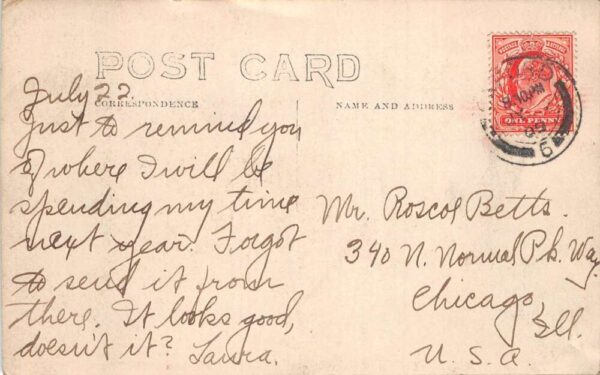 POST CARD
CORRESPONDENCE
NAME AND ADDRESS
July 22.
Just to remind you
of where I will be
spending my time
next year. Forgot
to send it from
there. It looks good,
doesn't it? Laura.
Mr. Roscoe Betts.
340 N. Normal Pk. Way.
Chicago,
Ill.
U. S. A.
ONE PENNY